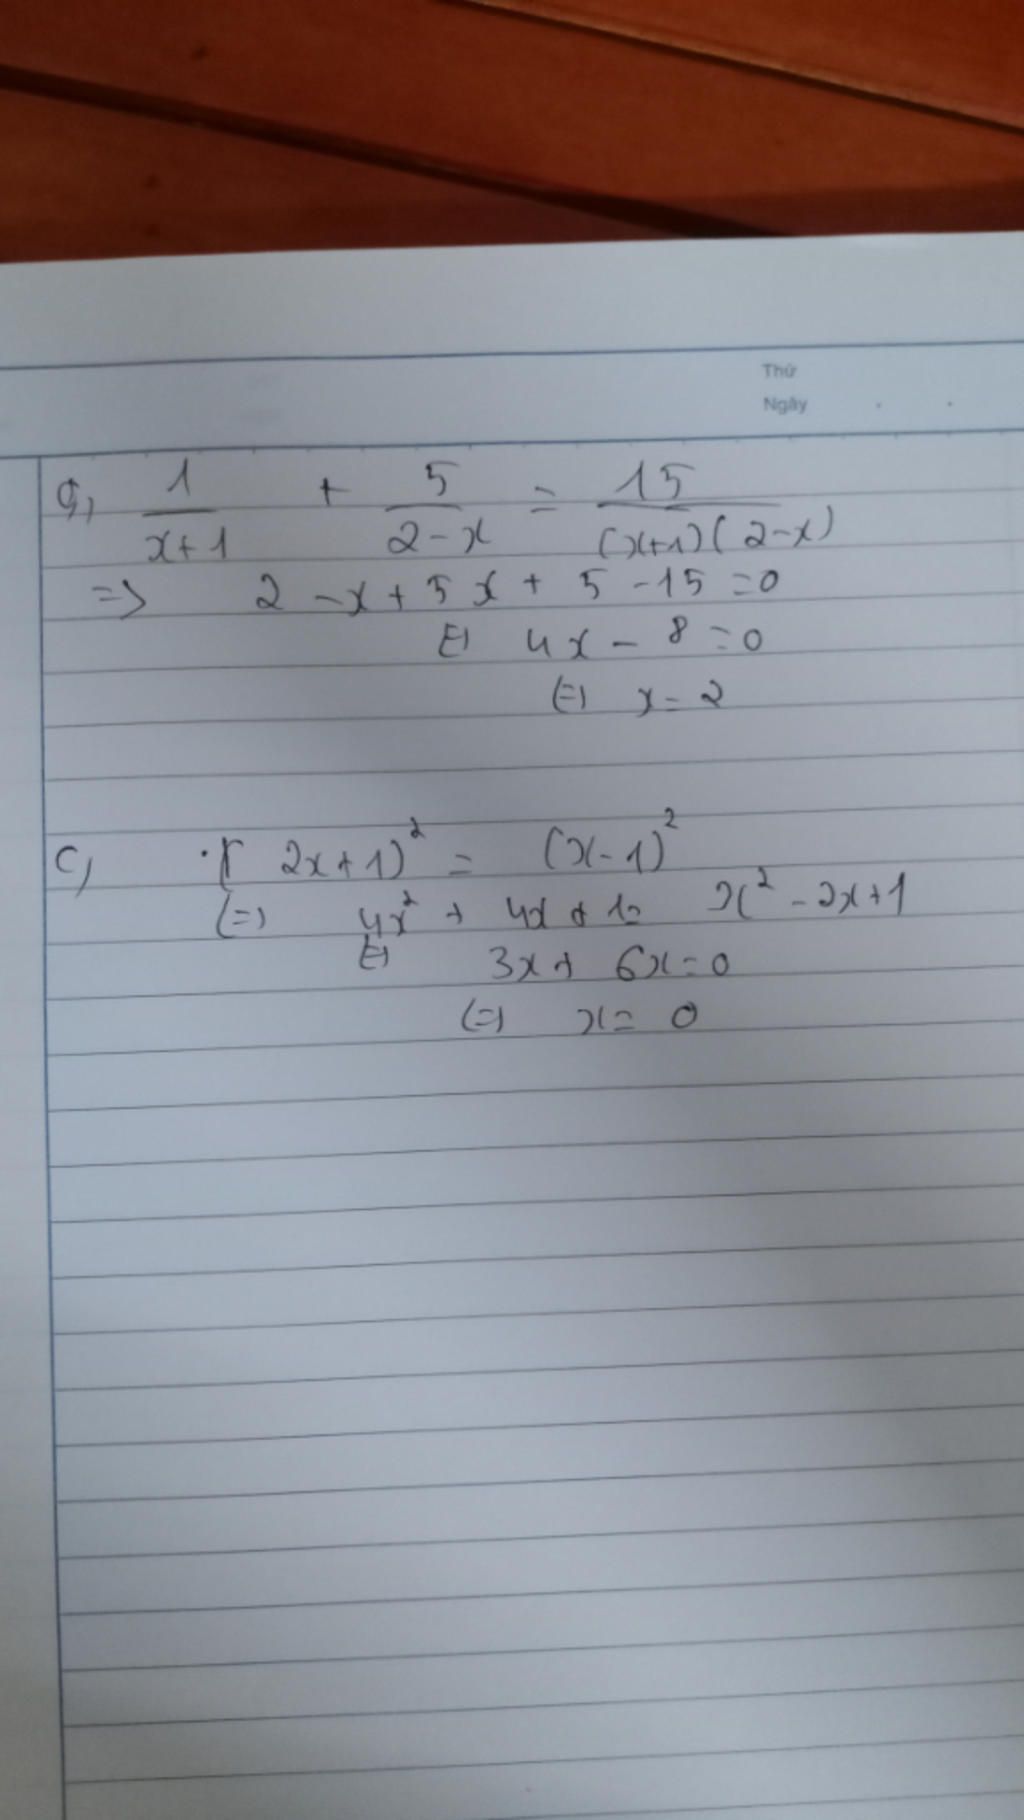 Thứ
Ngày . .
a, 1/(x+1) + 5/(2-x) = 15/((x+1)(2-x))
=> 2 - x + 5x + 5 - 15 = 0
(=) 4x - 8 = 0
(=) x = 2
c, (2x+1)² = (x-1)²
(=) 4x² + 4x + 1 = x² - 2x + 1
(=) 3x + 6x = 0
(=) x = 0